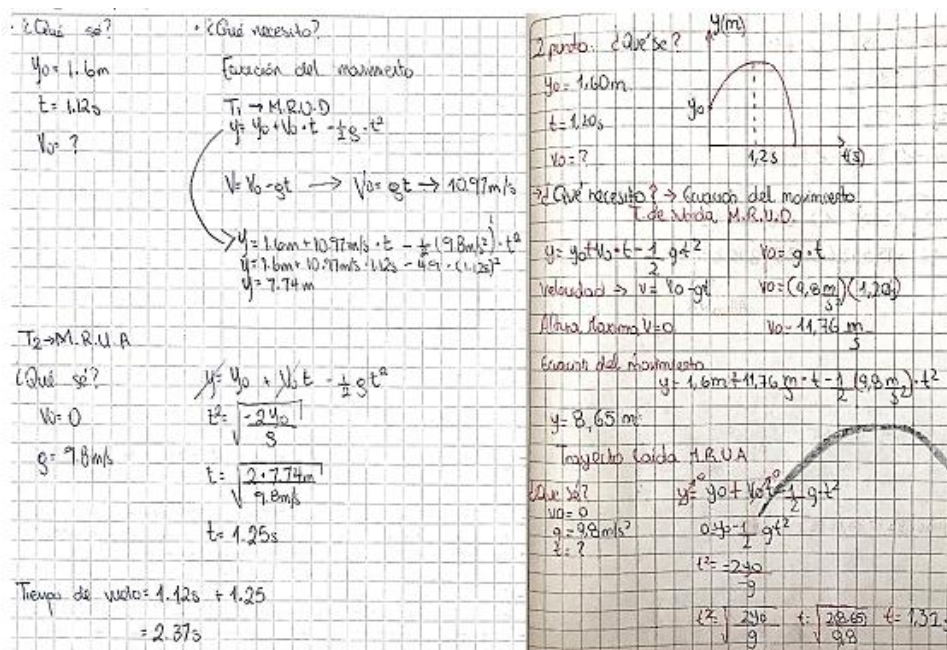 ¿Qué sé?
y₀ = 1.6m
t = 1.12s
V₀ = ?
• ¿Qué necesito?
Ecuación del movimiento
T₁ → M.R.U.D
y = y₀ + V₀ · t - ½ g · t²
V = V₀ - gt → V₀ = gt → 10.97 m/s
y = 1.6m + 10.97m/s · t - ½ (9.8m/s²) · t²
y = 1.6m + 10.97m/s · 1.12s - 4.9 · (1.12s)²
y = 7.74 m
T₂ → M.R.U.A
¿Qué sé?
V₀ = 0
g = 9.8m/s
y = y₀ + V₀ t - ½ g t²
t² = √-2y₀/g
t = √2·7.74m/9.8m/s
t = 1.25s
Tiempo de vuelo = 1.12s + 1.25
= 2.37s
2 punto: ¿Qué sé?
y₀ = 1,60m
t = 1,20s
V₀ = ?
y(m)
y₀
1,2s
t(s)
→ ¿Qué necesito? → Ecuación del movimiento
M.R.U.D.
y = y₀ + V₀ · t - 1/2 g t²
V₀ = g · t
velocidad => V = V₀ - gt
V₀ = (9,8 m/s²)(1,20s)
Altura Maxima V=0
V₀ = 11,76 m/s
Ecuación del movimiento
y = 1,6m + 11,76 m/s · t - 1/2 (9,8 m/s²) · t²
y = 8,65 m
Trayecto Caída M.R.U.A
¿Que sé?
V₀ = 0
g = 9,8 m/s²
t = ?
y = y₀ + V₀t - 1/2 g · t²
0 = y₀ - 1/2 g t²
t² = -2y₀/-g
t² = √2y₀/g
t = √2·8.65/9.8